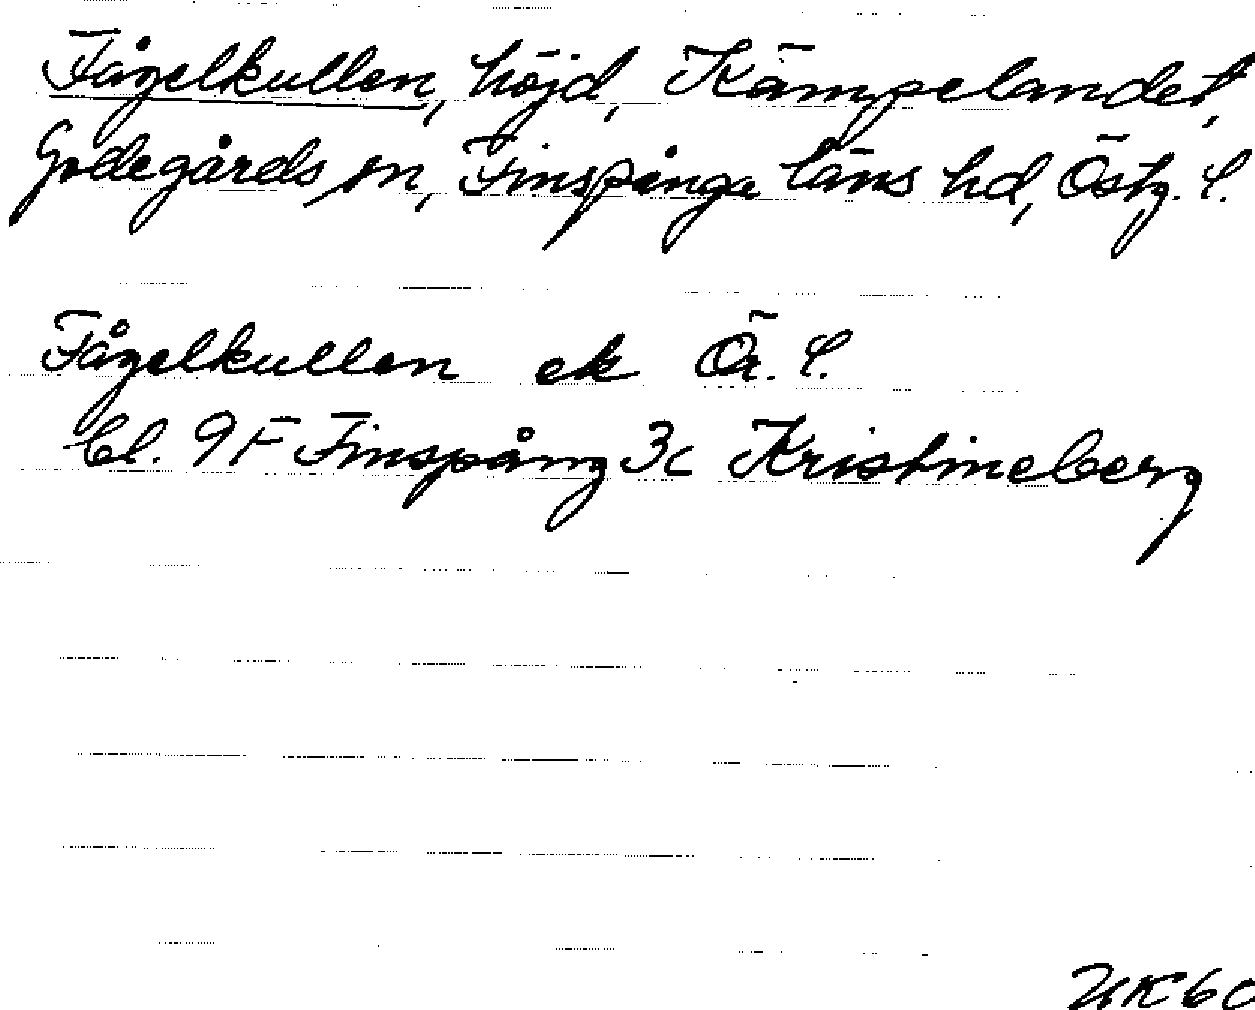 Fågelkullen, höjd, Kämpelandet,
Godegårds sn, Finspånga läns hd, Östg. l.
Fågelkullen ek Ör. l.
bl. 9F Finspång 3c Kristineberg